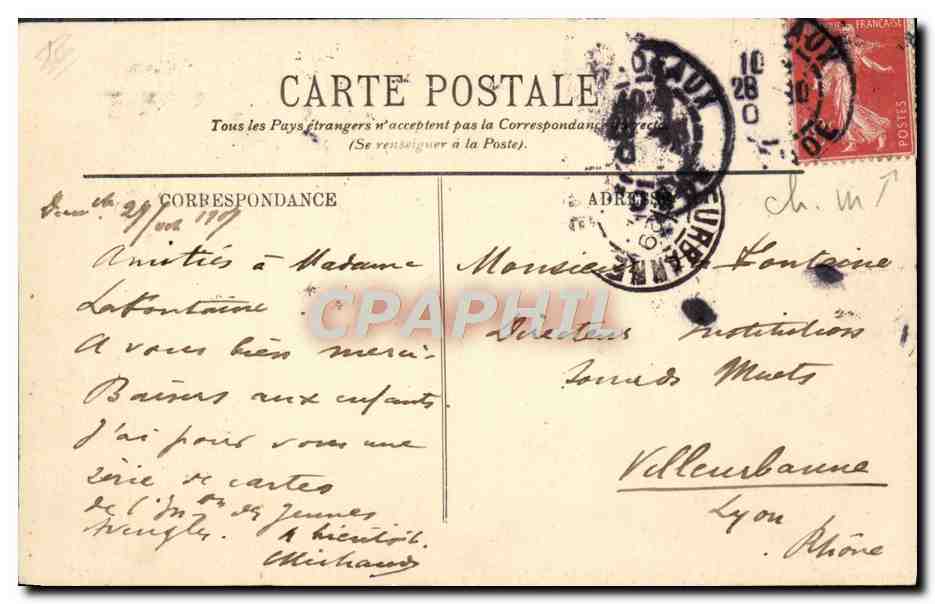 CARTE POSTALE
Tous les Pays étrangers n'acceptent pas la Correspondance
(Se renseigner à la Poste).
CORRESPONDANCE
ADRESSE
Amitiés à Madame
Lafontaine
A vous bien merci.
Baisers aux enfants.
J'ai pour vous une
série de cartes
de l'Inon des Jeunes
Aveugles. A bientôt.
Michaud
Monsieur Fontaine
Directeur Institution
Sourds Muets
Villeurbanne
Lyon
Rhône
ch. m
DEAUX
10
28
0
EURBANNE
AUX
30
FRANÇAISE
POSTES
CPAPHIL